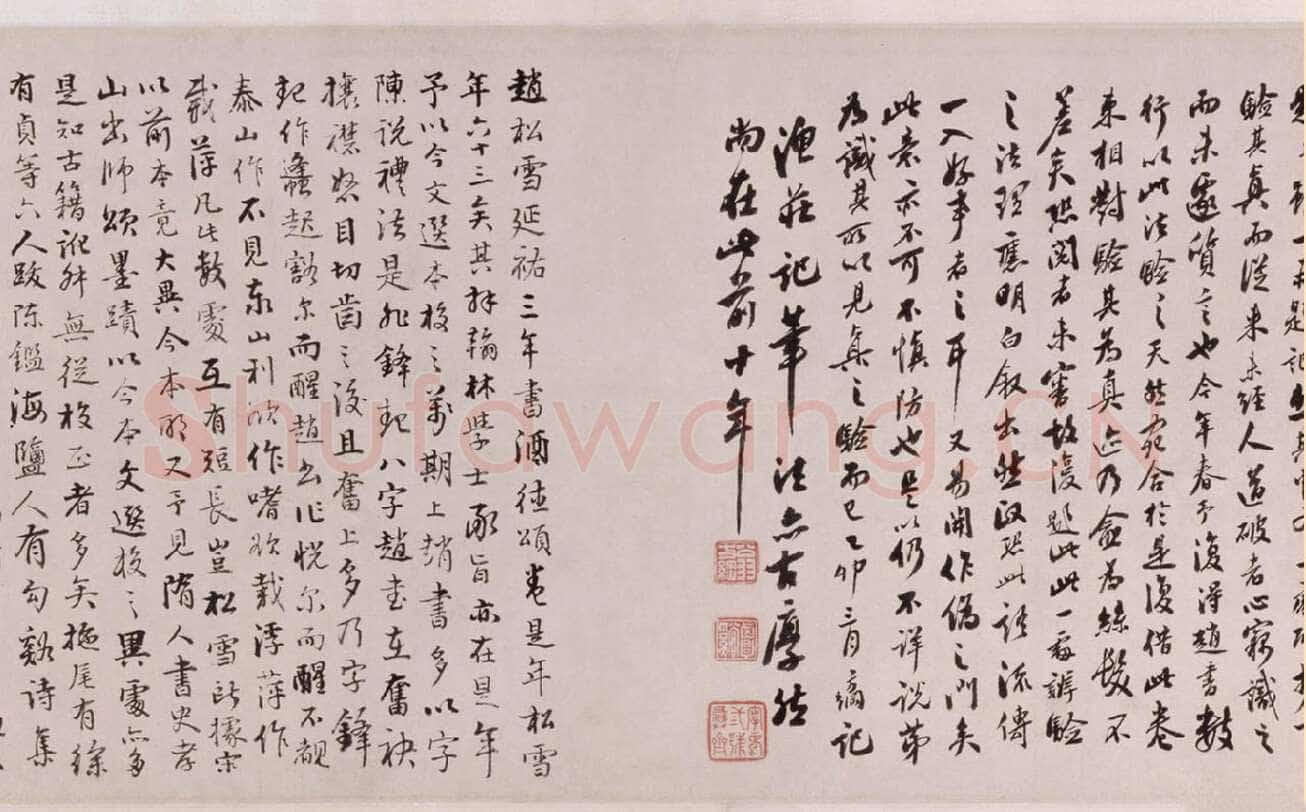 驗其真而從來未經人道破者心竊識之
而未遽質言也今年春予復得趙書數
行以此法驗之天然宛合於是復借此卷
來相對驗其為真迹乃僉為絲髮不
差矣然閱者未審故漫題此此一處辨驗
之法理應明白叙出些改然此語流傳
一入好事者之耳又易開作偽之門矣
此意亦不可不慎防也是以仍不詳說第
為識其所以見真之驗而已乙卯三月 記
漁莊記筆法亦古厚然
尚在此前十年
趙松雪延祐三年書酒德頌卷是年松雪
年六十三矣其拜翰林學士承旨亦在是年
予以今文選本校之萬期上趙書多以字
陳說禮法是非鋒起八字趙書在奮袂
攘襟怒目切齒之後且奮上多乃字鋒
起作蠭起豁尔而醒趙書作恍尔而醒不覩
泰山作不見泰山利欲作嗜欲載浮萍作
載萍凡此數處互有短長豈松雪所據宋
以前本竟大異今本耶又予見隋人書史孝
山出師頌墨蹟以今本文選校之異處亦多
是知古籍訛舛無從校正者多矣拖尾有徐
有貞等六人跋陳鑑海鹽人有勾谿詩集
Shufawang.CN